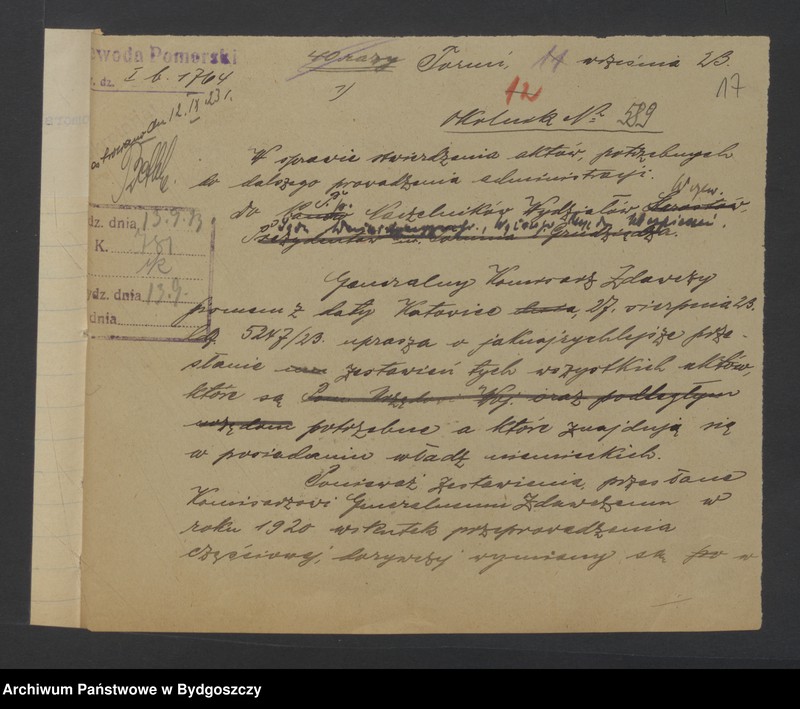 ewoda Pomorski
L. dz. I b. 1764
40 razy Toruń, 11 września 23.
12
17
Okólnik № 589
12.IX 23 r.
W sprawie stwierdzenia aktów, potrzebnych
do dalszego prowadzenia administracji.
do Naczelników Wydziałów Starostów
Prezydentów m. Torunia Grudziądza.
dz. dnia 13.9.23
K. 781
ydz. dnia 13.9.
dnia
Generalny Komisarz Zdawczy
pismem z daty Katowice dnia, 27. sierpnia 23.
5247/23. uprasza o jaknajrychlejsze prze-
słanie zestawień tych wszystkich aktów,
które są oraz podległym
urzędom potrzebne a które znajdują się
w posiadaniu władz niemieckich.
Ponieważ zestawienia, przesłane
Komisarzowi Generalnemu Zdawczemu w
roku 1920 wskutek przeprowadzenia
częściowej, dorywczej wymiany są po w
Archiwum Państwowe w Bydgoszczy